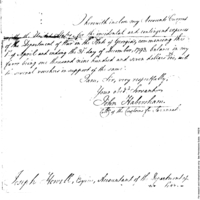 I herewith inclose my Account Current
with the United States, for the incidental and contingent expences
of the Department of War in the State of Georgia, commencing the
1st of April and ending the 31 of December, 1793, balance in my
favor being one thousand nine hundred and seven dollars
the several vouchers in support of the same.
I am, Sir, very respectfully,
Your obdt. Servant,
John Habersham
of the Customs for Savannah
Joseph Howell, Esquire, Accountant of the Department of